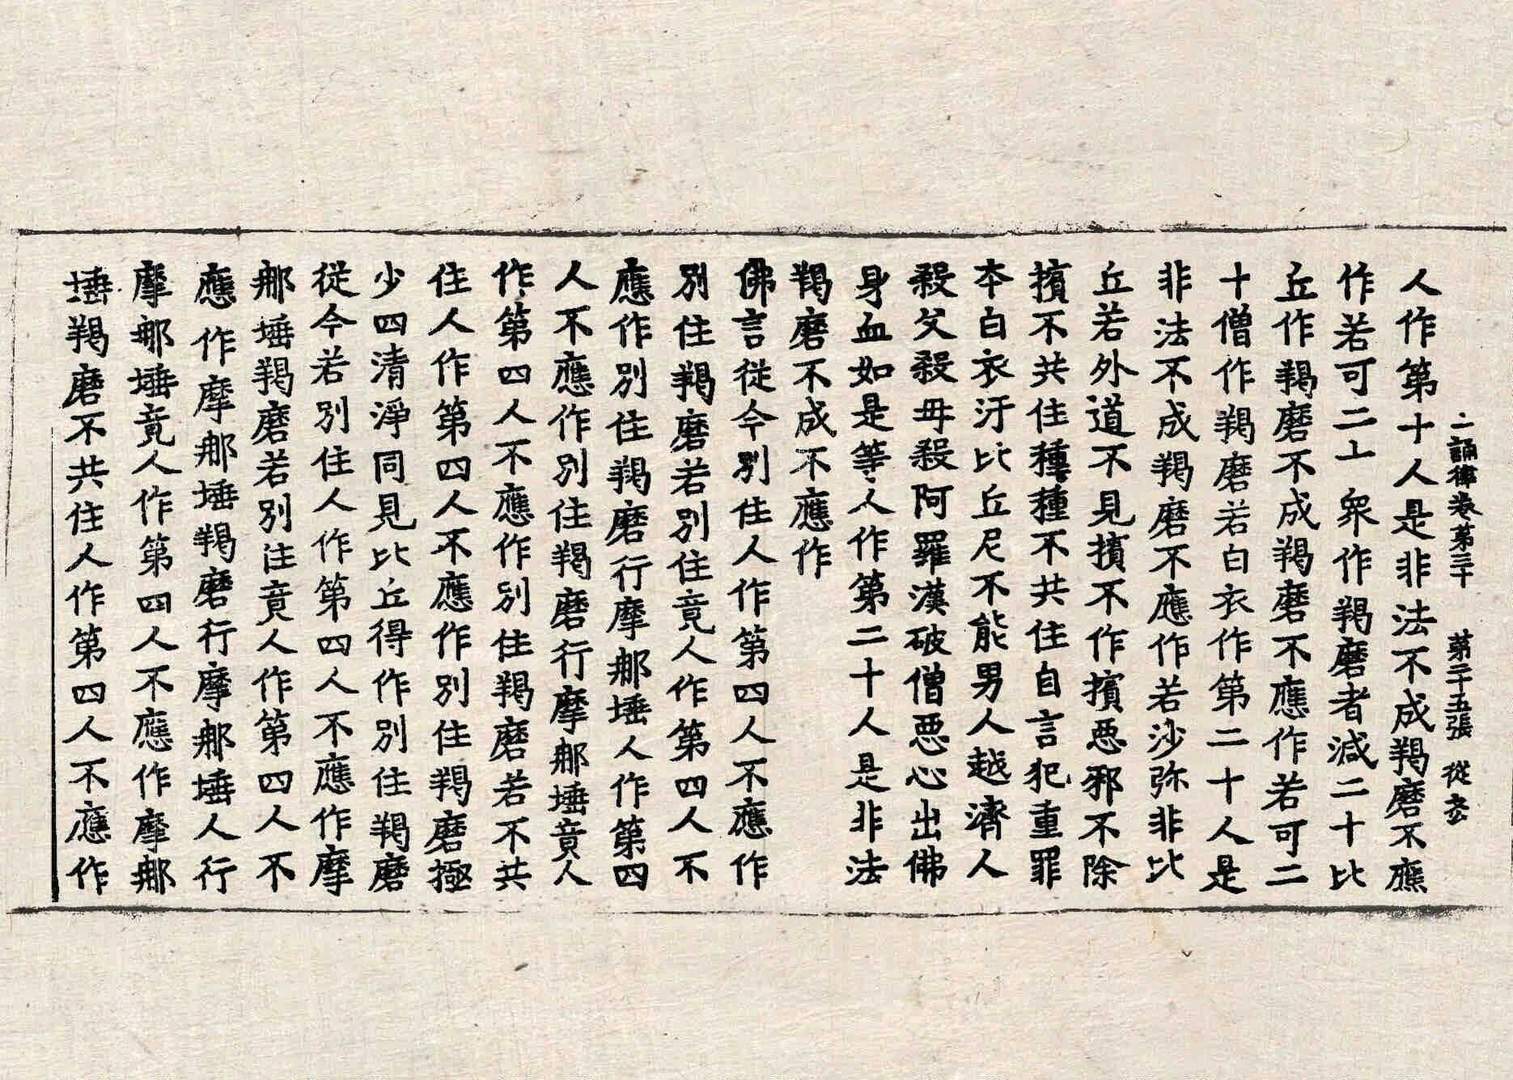 二誦律卷第三十　第二十五張　從玄
人作第十人是非法不成羯磨不應
作若可二十眾作羯磨者減二十比
丘作羯磨不成羯磨不應作若可二
十僧作羯磨若白衣作第二十人是
非法不成羯磨不應作若沙弥非比
丘若外道不見擯不作擯惡邪不除
擯不共住種種不共住自言犯重罪
本白衣汙比丘尼不能男人越濟人
殺父殺母殺阿羅漢破僧惡心出佛
身血如是等人作第二十人是非法
羯磨不成不應作
佛言從今別住人作第四人不應作
別住羯磨若別住竟人作第四人不
應作別住羯磨行摩那埵人作第四
人不應作別住羯磨行摩那埵竟人
作第四人不應作別住羯磨若不共
住人作第四人不應作別住羯磨極
少四清淨同見比丘得作別住羯磨
從今若別住人作第四人不應作摩
那埵羯磨若別住竟人作第四人不
應作摩那埵羯磨行摩那埵人行
摩那埵竟人作第四人不應作摩那
埵羯磨不共住人作第四人不應作